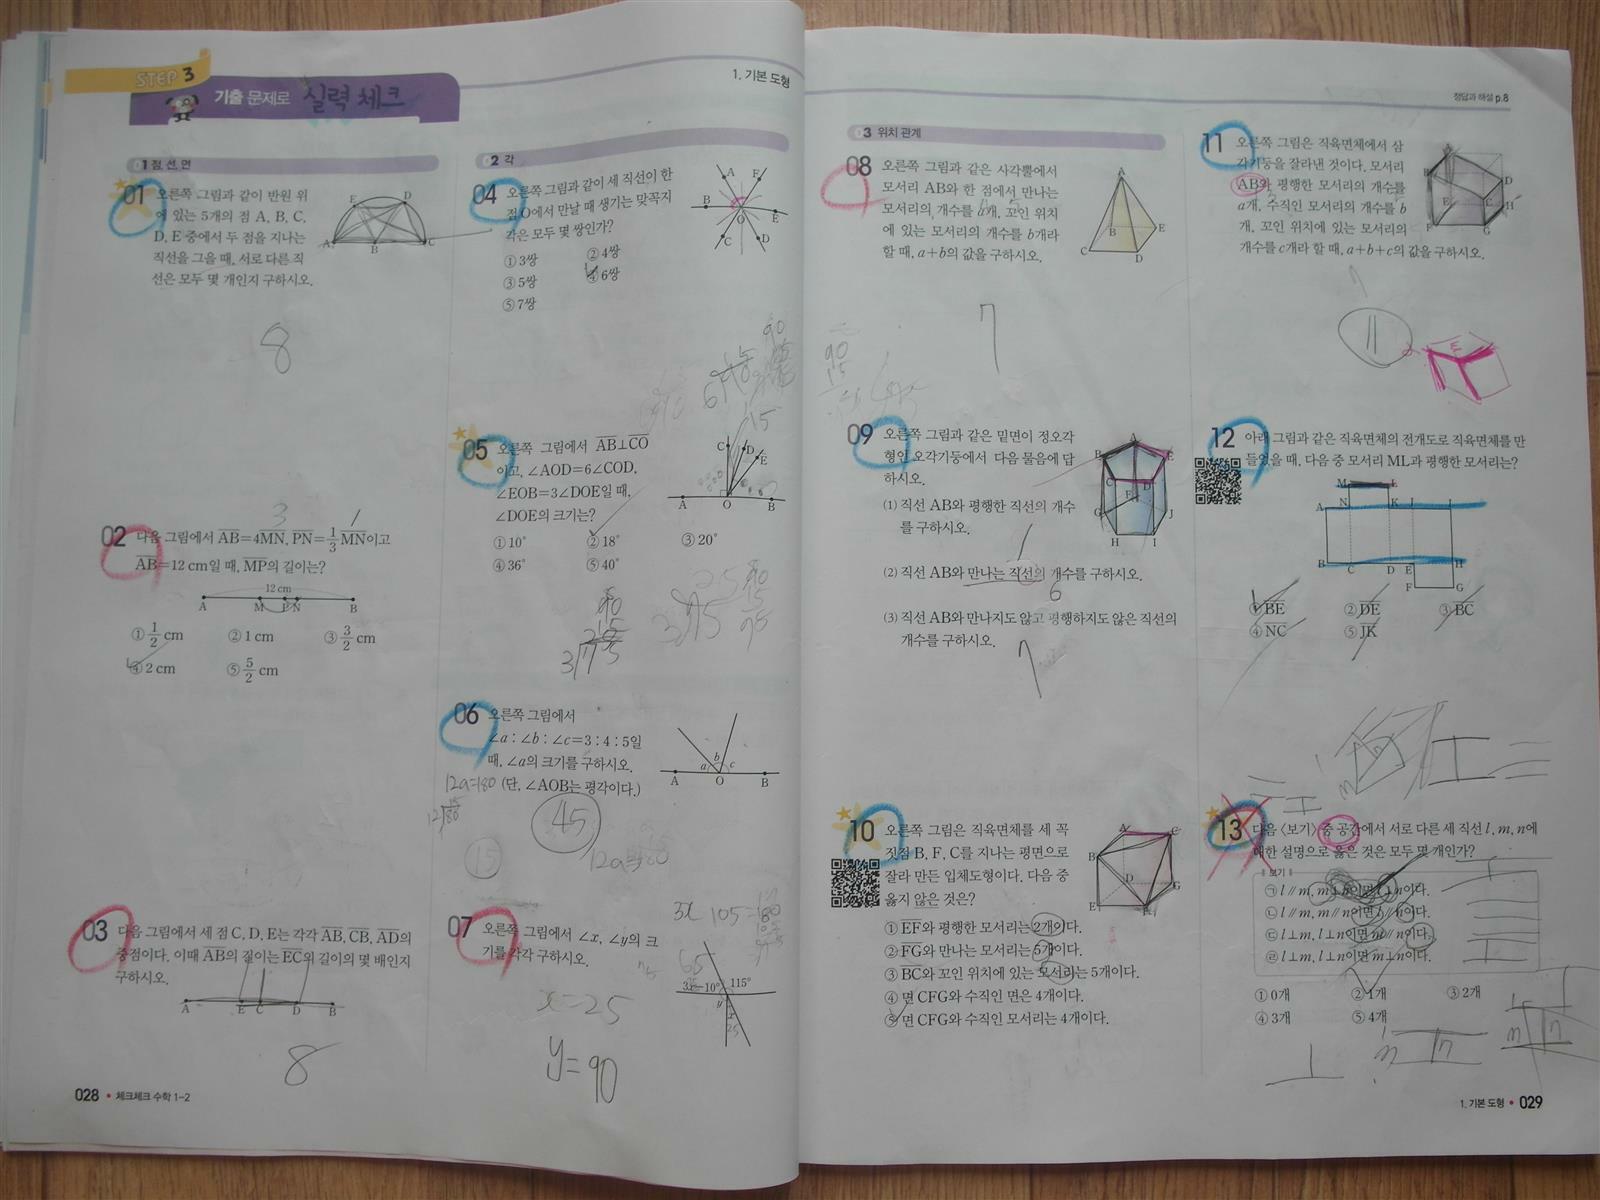 STEP 3
기출 문제로 실력 체크
1. 기본 도형
01 점, 선, 면
01 오른쪽 그림과 같이 반원 위
에 있는 5개의 점 A, B, C,
D, E 중에서 두 점을 지나는
직선을 그을 때, 서로 다른 직
선은 모두 몇 개인지 구하시오.
E D
A B C
8
02 다음 그림에서 AB=4MN, PN=1/3 MN이고
AB=12 cm일 때, MP의 길이는?
3 1
12 cm
A M P N B
① 1/2 cm ② 1 cm ③ 3/2 cm
④ 2 cm ⑤ 5/2 cm
03 다음 그림에서 세 점 C, D, E는 각각 AB, CB, AD의
중점이다. 이때 AB의 길이는 EC의 길이의 몇 배인지
구하시오.
A E C D B
8
028 • 체크체크 수학 1-2
02 각
04 오른쪽 그림과 같이 세 직선이 한
점 O에서 만날 때 생기는 맞꼭지
각은 모두 몇 쌍인가?
① 3쌍 ② 4쌍
③ 5쌍 ④ 6쌍
⑤ 7쌍
A F
B O E
C D
05 오른쪽 그림에서 AB⊥CO
이고, ∠AOD=6∠COD,
∠EOB=3∠DOE일 때,
∠DOE의 크기는?
① 10° ② 18° ③ 20°
④ 36° ⑤ 40°
C D E
A O B
06 오른쪽 그림에서
∠a : ∠b : ∠c=3 : 4 : 5일
때, ∠a의 크기를 구하시오.
(단, ∠AOB는 평각이다.)
a b c
A O B
12a=180
45
15
12a=180
07 오른쪽 그림에서 ∠x, ∠y의 크
기를 각각 구하시오.
3x-10° 115°
y x
65
25
x=25
y=90
정답과 해설 p.8
03 위치 관계
08 오른쪽 그림과 같은 사각뿔에서
모서리 AB와 한 점에서 만나는
모서리의 개수를 a개, 꼬인 위치
에 있는 모서리의 개수를 b개라
할 때, a+b의 값을 구하시오.
A
B E
C D
7
09 오른쪽 그림과 같은 밑면이 정오각
형인 오각기둥에서 다음 물음에 답
하시오.
(1) 직선 AB와 평행한 직선의 개수
를 구하시오.
1
(2) 직선 AB와 만나는 직선의 개수를 구하시오.
6
(3) 직선 AB와 만나지도 않고 평행하지도 않은 직선의
개수를 구하시오.
7
A
B E
C D
F
G J
H I
10 오른쪽 그림은 직육면체를 세 꼭
짓점 B, F, C를 지나는 평면으로
잘라 만든 입체도형이다. 다음 중
옳지 않은 것은?
① EF와 평행한 모서리는 2개이다.
② FG와 만나는 모서리는 5개이다.
③ BC와 꼬인 위치에 있는 모서리는 5개이다.
④ 면 CFG와 수직인 면은 4개이다.
⑤ 면 CFG와 수직인 모서리는 4개이다.
A C
B
D G
E F
11 오른쪽 그림은 직육면체에서 삼
각기둥을 잘라낸 것이다. 모서리
AB와 평행한 모서리의 개수를
a개, 수직인 모서리의 개수를 b
개, 꼬인 위치에 있는 모서리의
개수를 c개라 할 때, a+b+c의 값을 구하시오.
11
12 아래 그림과 같은 직육면체의 전개도로 직육면체를 만
들었을 때, 다음 중 모서리 ML과 평행한 모서리는?
M L
A N K J I
B C D E H
F G
① BE ② DE ③ BC
④ NC ⑤ JK
13 다음 〈보기〉 중 공간에서 서로 다른 세 직선 l, m, n에
대한 설명으로 옳은 것은 모두 몇 개인가?
보기
㉠ l∥m, m⊥n이면 l⊥n이다.
㉡ l∥m, m∥n이면 l∥n이다.
㉢ l⊥m, l⊥n이면 m∥n이다.
㉣ l⊥m, l⊥n이면 m⊥n이다.
① 0개 ② 1개 ③ 2개
④ 3개 ⑤ 4개
1. 기본 도형 • 029